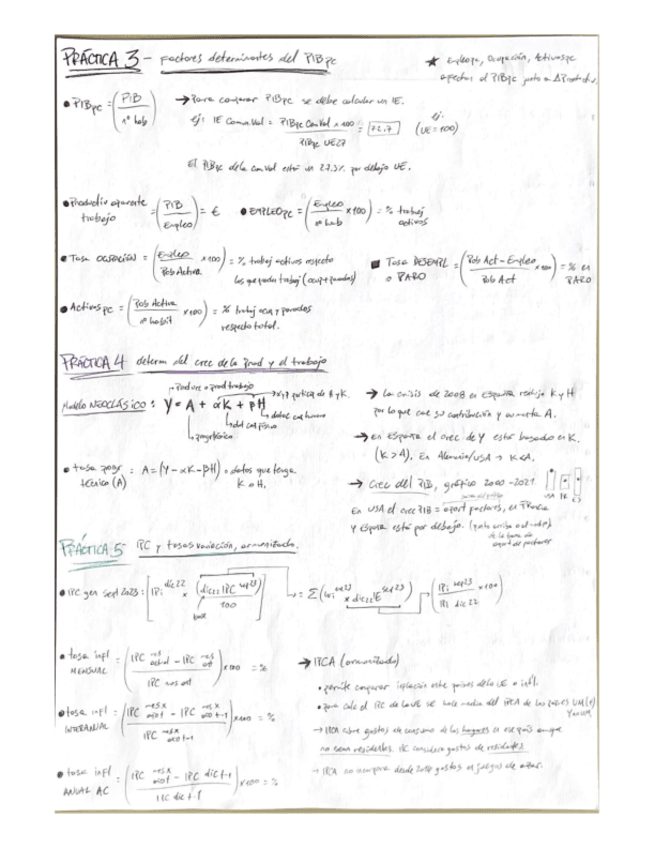 PRÁCTICA 3 - Factores determinantes del PIBpc
★ Empleopc, Ocupación, Activospc
afectan al PIBpc junto a ΔProductiv.
• PIBpc = (PIB / nº hab) → Para comparar PIBpc se debe calcular un IE.
Ej: IE Comun.Val = PIBpc ComVal x 100 / PIBpc UE27 = 72.7 (UE=100)
El PIBpc de la ComVal está un 27.3% por debajo UE.
• Productiv aparente trabajo = (PIB / Empleo) = € • EMPLEOpc = (Empleo / nº hab x100) = % trabaj activos
• Tasa OCUPACIÓN = (Empleo / Pob Activa x100) = % trabaj activos respecto
los que pueden trabaj (ocup+parados)
■ Tasa DESEMPL o PARO = (Pob Act - Empleo / Pob Act x100) = % en PARO
• Activospc = (Pob Activa / nº habit x100) = % trabaj ocu y parados
respecto total.
PRÁCTICA 4 determ del crec de la Prod y el trabajo
Modelo NEOCLÁSICO: Y = A + αK + βH
• tasa progr técnico (A) : A = (Y - αK - βH) → datos que tenga
K o H.
→ La crisis de 2008 en España redujo K y H
por lo que cae su contribución y aumenta A.
→ en España el crec de Y está basado en K.
(K > A). En Alemania/USA → K < A.
→ Crec del PIB, gráfico 2000-2021
En USA el crec PIB = aport factores, en
y España está por debajo.
PRÁCTICA 5 IPC y tasas variación, armonizado.
• IPC gen sept 2023 =
• tasa infl MENSUAL = (IPC mes actual - IPC mes ant / IPC mes ant) x100 = %
• tasa infl INTERANUAL = (IPC mes x año t - IPC mes x año t-1 / IPC mes x año t-1) x100 = %
• tasa infl ANUAL AC = (IPC mes año t - IPC dic t-1 / IPC dic t-1) x100 = %
→ IPCA (armonizado)
• permite comparar inflación entre países de la UE
• para calc el IPC de la UE se hace media del IPCA de los países
→ IPCA cubre gastos de consumo de los hogares en ese país aunque
no sean residentes. IPC considera gastos de residentes
→ IPCA no incorpora desde gastos en juegos de azar.